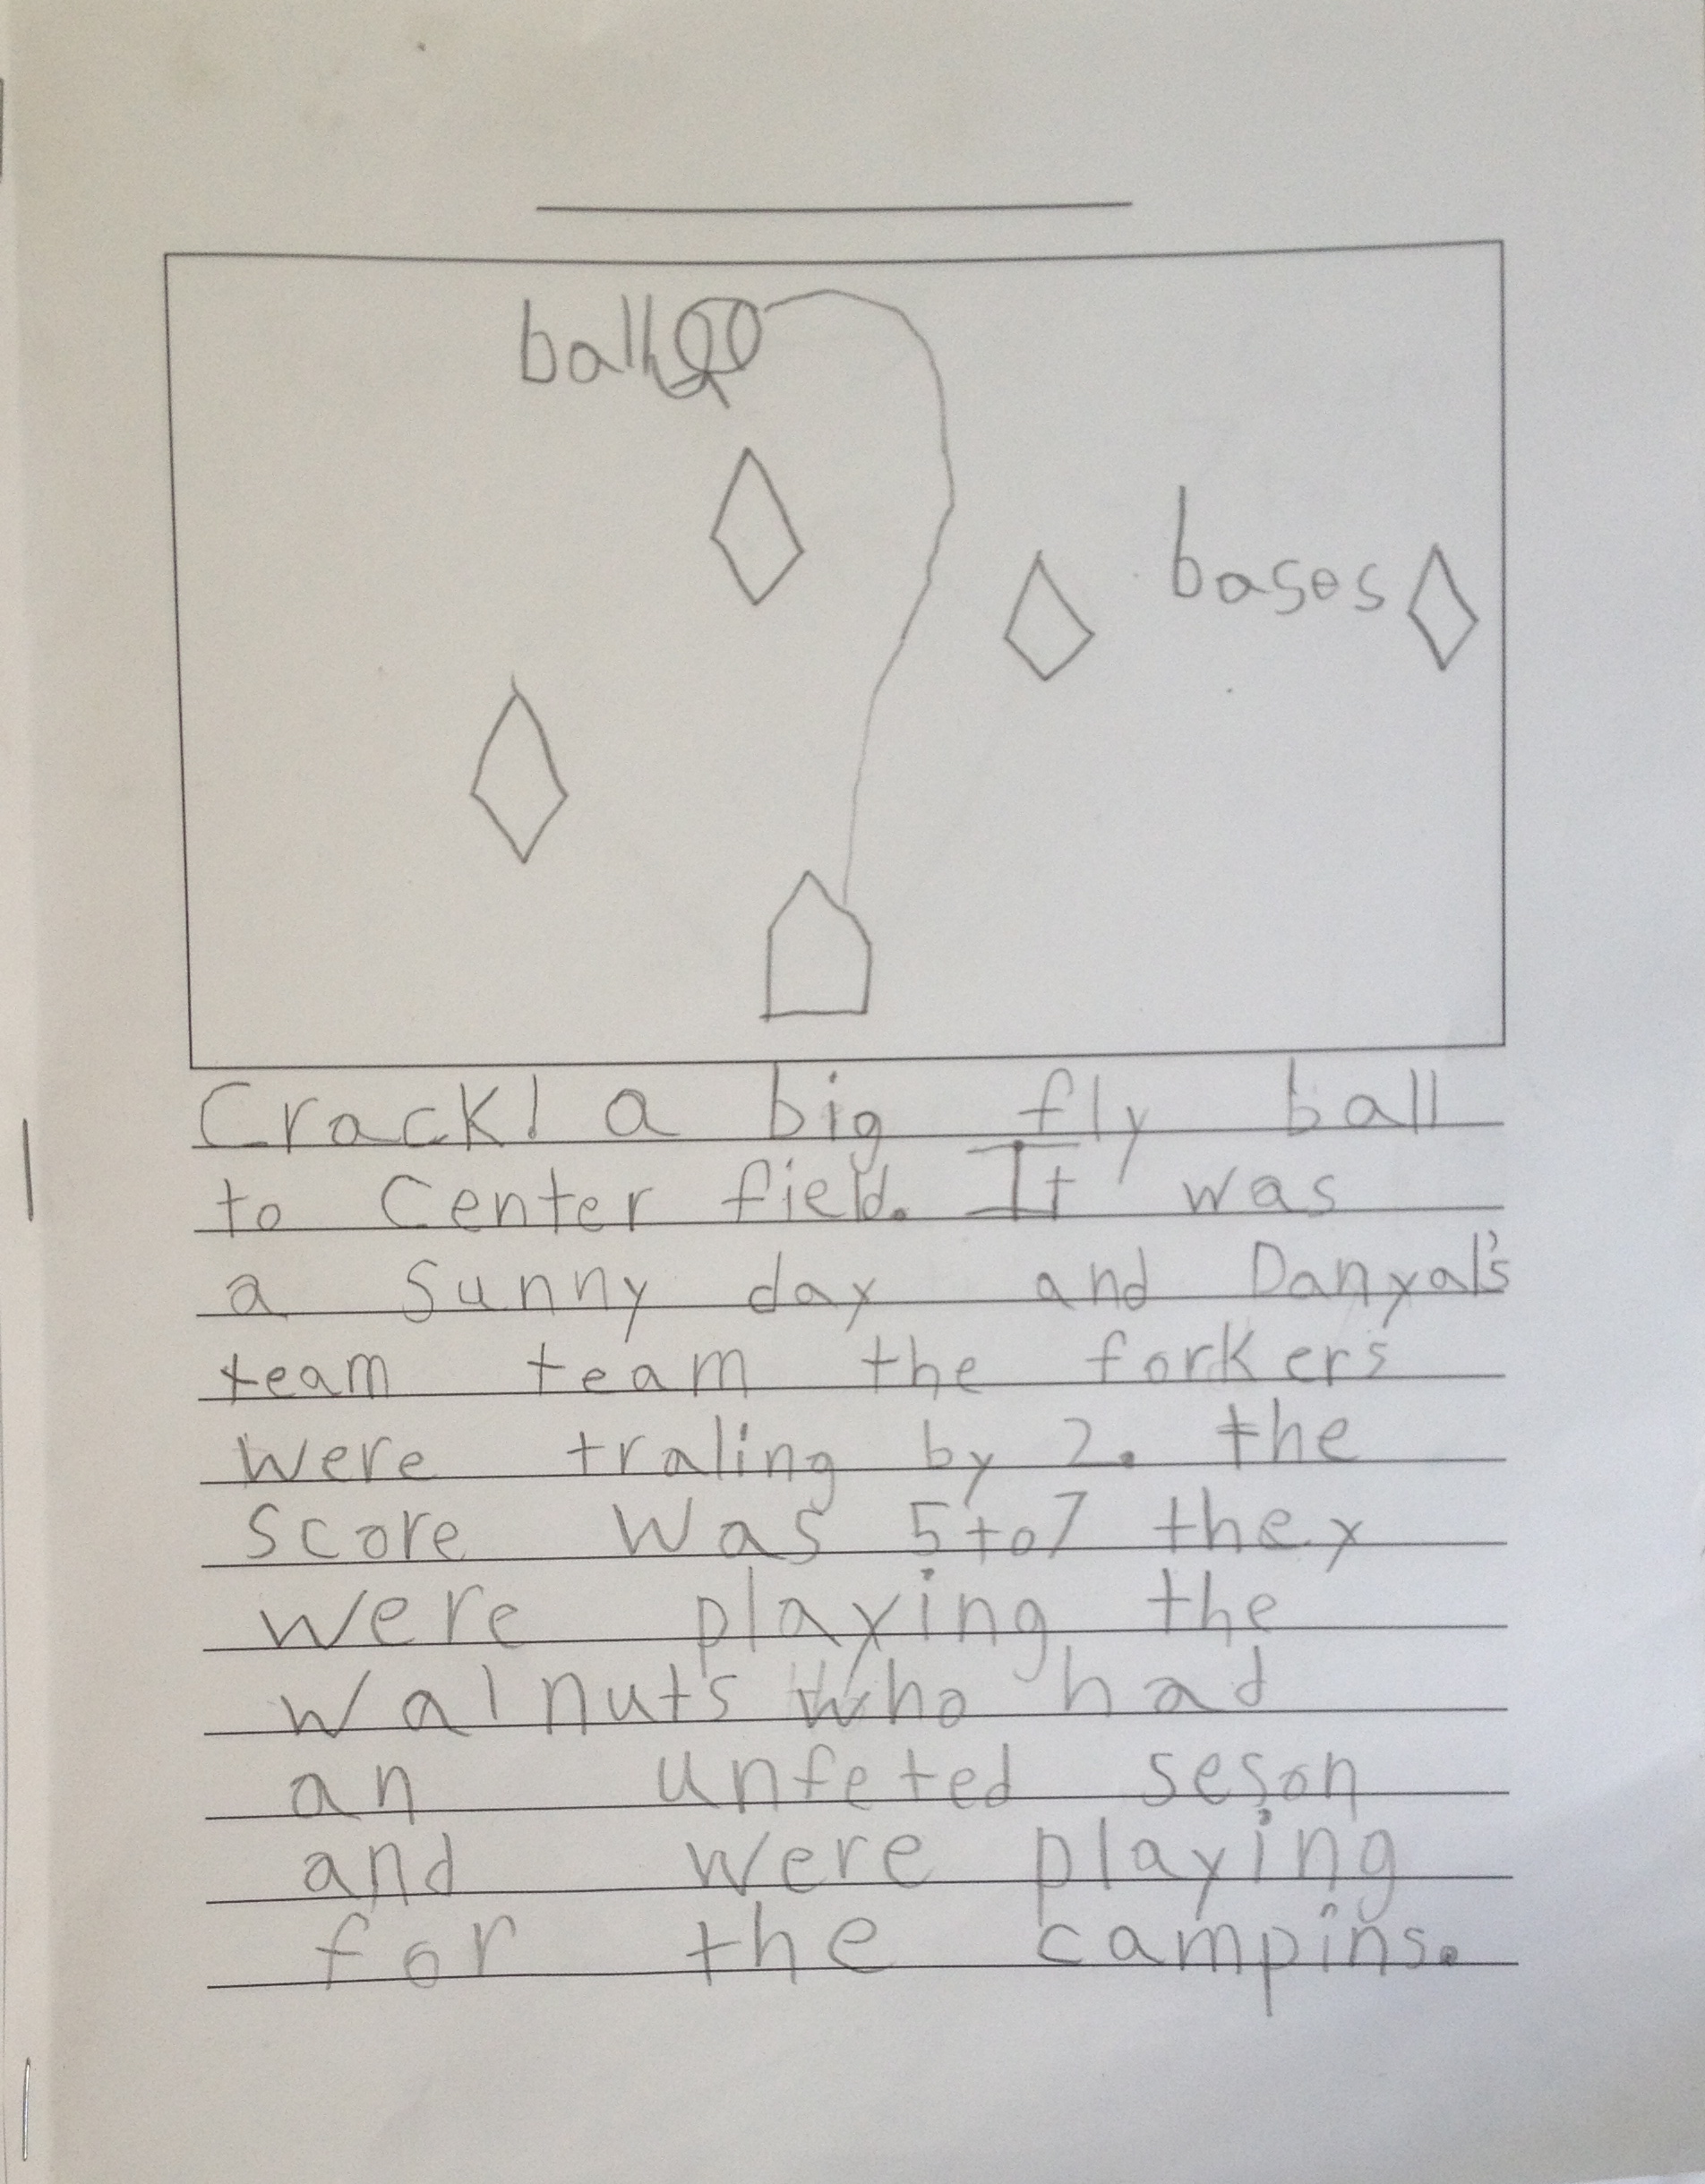 ball
bases
Crack! a big fly ball
to Center field. It was
a sunny day and Danyal's
team team the forkers
were traling by 2. the
score was 5 to 7 they
were playing the
walnuts who had
an unfeted seson
and were playing
for the campins.